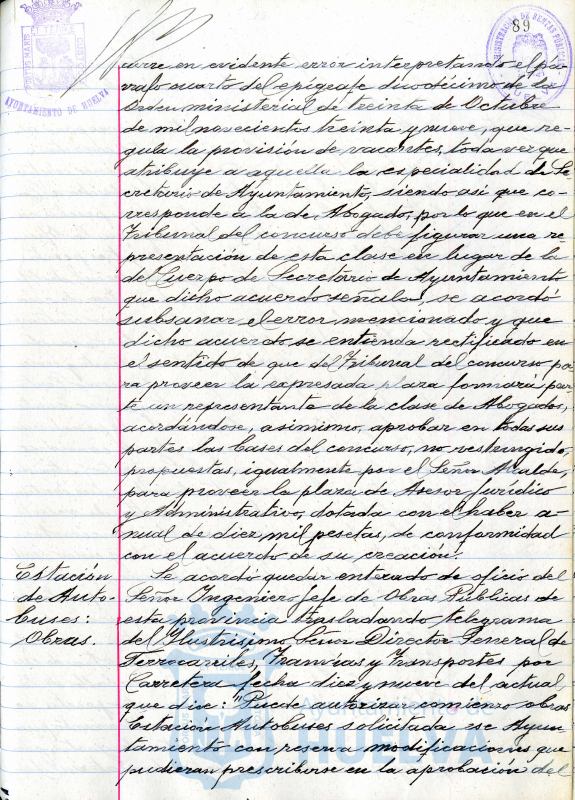 89
AYUNTAMIENTO DE HUELVA
curre en evidente error interpretando el pá-
rrafo cuarto del epígrafe duodécimo de la
Orden ministerial de treinta de Octubre
de mil novecientos treinta y nueve, que re-
gula la provisión de vacantes, toda vez que
atribuye a aquella la especialidad de Se-
cretario de Ayuntamiento, siendo así que co-
rresponde a la de Abogado, por lo que en el
Tribunal del concurso debe figurar una re-
presentación de esta clase en lugar de la
del Cuerpo de Secretario de Ayuntamiento
que dicho acuerdo señala, se acordó
subsanar el error mencionado y que
dicho acuerdo se entienda rectificado en
el sentido de que del Tribunal del concurso pa-
ra proveer la expresada plaza formará par-
te un representante de la clase de Abogados,
acordándose, asimismo, aprobar en todas sus
partes las bases del concurso, no restringido,
propuestas, igualmente por el Señor Alcalde,
para proveer la plaza de Asesor Jurídico
y Administrativo, dotada con el haber a-
nual de diez mil pesetas, de conformidad
con el acuerdo de su creación.
Estación
de Auto-
buses:
Obras.
Se acordó quedar enterado de oficio del
Señor Ingeniero Jefe de Obras Públicas de
esta provincia trasladando telegrama
del Ilustrísimo Señor Director General de
Ferrocarriles, Tranvías y Transportes por
Carretera fecha diez y nueve del actual
que dice: "Puede autorizar comienzo obras
Estación Autobuses solicitada ese Ayun-
tamiento con reserva modificaciones que
pudieran prescribirse en la aprobación del
Ayuntamiento de
HUELVA